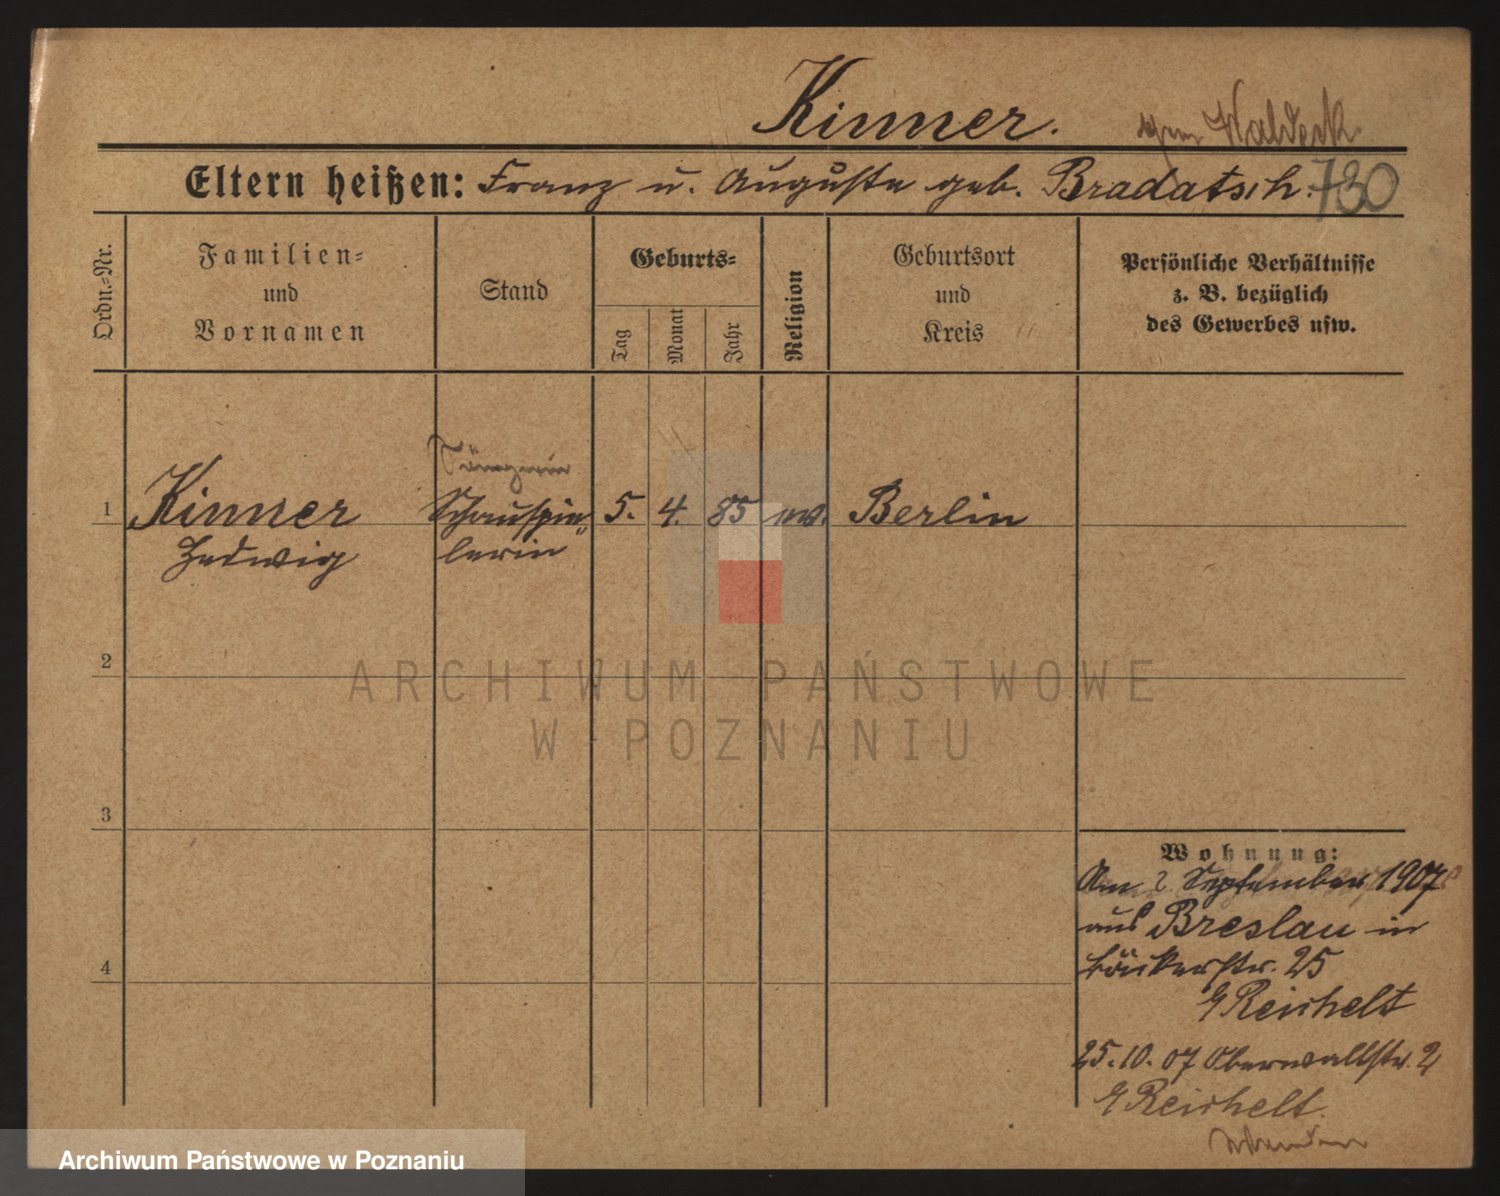 Kinner.
Waldeck
Eltern heißen: Franz u. Auguste geb. Bradatsch.
780
Ordn.-Nr.
Familien-
und
Vornamen
Stand
Geburts-
Tag
Monat
Jahr
Religion
Geburtsort
und
Kreis
Persönliche Verhältnisse
z. B. bezüglich
des Gewerbes usw.
1 Kinner Schauspie„ 5. 4. 85 ev. Berlin
Hedwig lerin“
2
ARCHIWUM PAŃSTWOWE
W POZNANIU
3
4
Wohnung:
Am 2. September 1907
aus Breslau in
Bäckerstr. 25
Reichelt
25.10.07 Oberwallstr. 2
Reichelt.
Archiwum Państwowe w Poznaniu